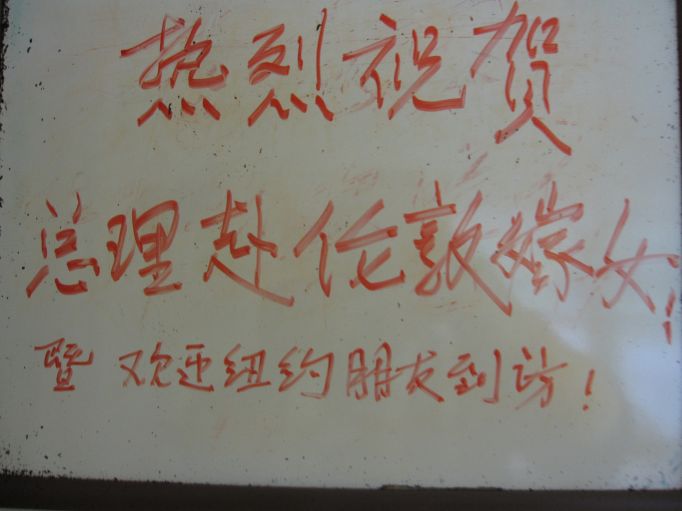 热烈祝贺
总理赴伦敦嫁女!
暨 欢迎纽约朋友到访!